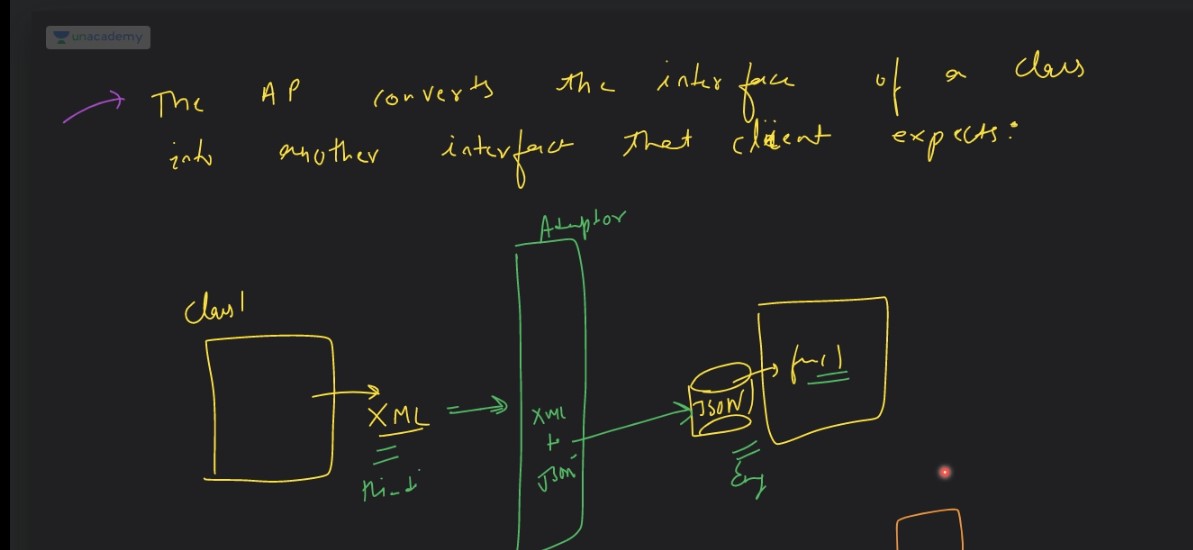 unacademy
The AP converts the interface of a class
into another interface that client expects.
Adaptor
Class1
func1
JSON
XML
XML
to
JSON
Hindi
Eng